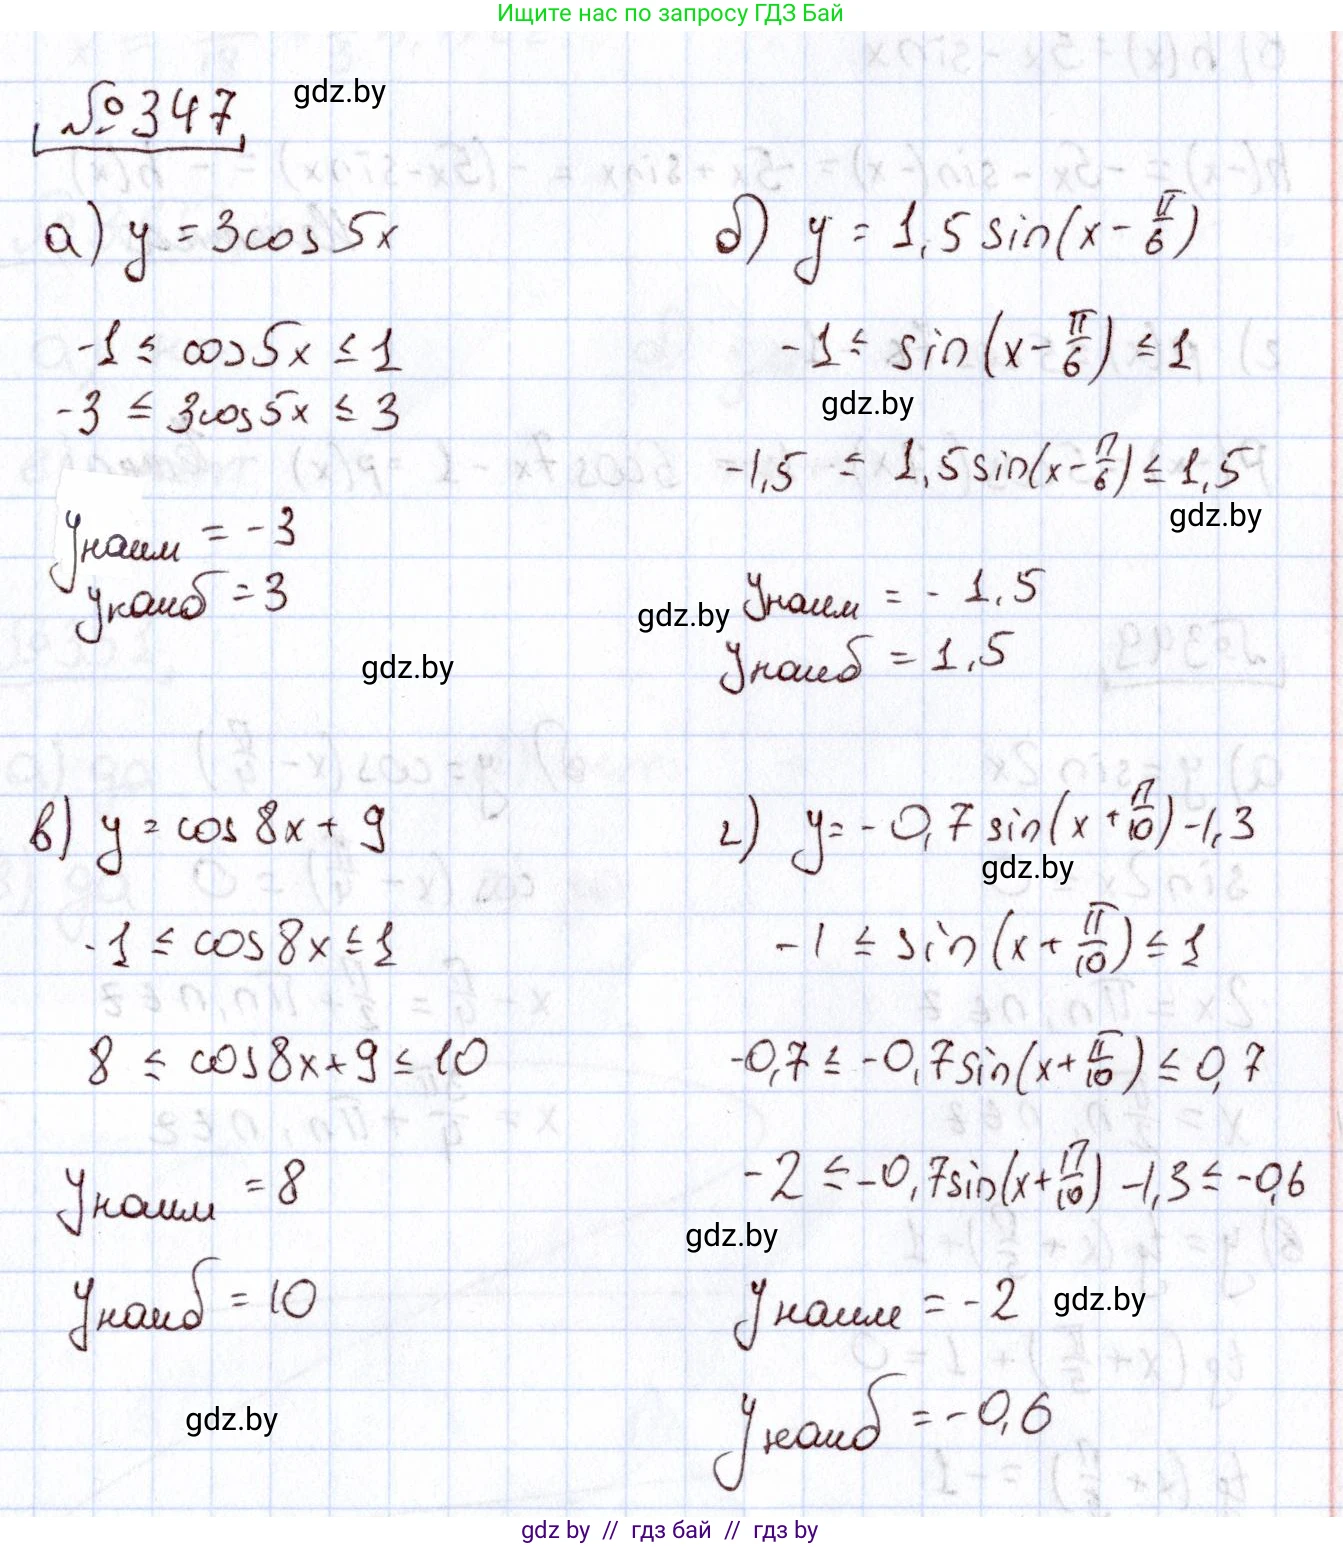 Ищите нас по запросу ГДЗ Бай
№347
gdz.by
а) y = 3cos 5x
-1 ≤ cos 5x ≤ 1
-3 ≤ 3cos 5x ≤ 3
yнаим = -3
yнаиб = 3
gdz.by
б) y = 1,5 sin(x - π/6)
-1 ≤ sin(x - π/6) ≤ 1
gdz.by
-1,5 ≤ 1,5 sin(x - π/6) ≤ 1,5
gdz.by
gdz.by
yнаим = -1,5
yнаиб = 1,5
в) y = cos 8x + 9
-1 ≤ cos 8x ≤ 1
8 ≤ cos 8x + 9 ≤ 10
yнаим = 8
yнаиб = 10
gdz.by
г) y = -0,7 sin(x + π/10) - 1,3
gdz.by
-1 ≤ sin(x + π/10) ≤ 1
-0,7 ≤ -0,7 sin(x + π/10) ≤ 0,7
-2 ≤ -0,7 sin(x + π/10) - 1,3 ≤ -0,6
gdz.by
yнаим = -2
gdz.by
yнаиб = -0,6
gdz by // гдз бай // гдз by